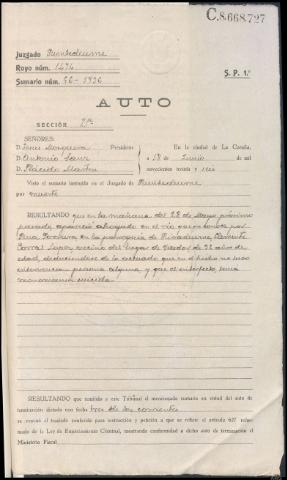 C.8.668.727
Juzgado Puentedeume
Rollo núm. 1494
Sumario núm. 56-1936
S. P. 1.ª
AUTO
SECCIÓN 2ª
SEÑORES:
D. Presidente
D. Antonio
D. Plácido Martín
En la ciudad de La Coruña,
a 18 de Junio de mil
novecientos treinta y seis
Visto el sumario instruído en el Juzgado de Puentedeume
por muerte
RESULTANDO que en la mañana del 28 de Mayo próximo
pasado, apareció ahogado en el río
en la parroquia de
Corral vecino del lugar de de 32 años de
edad, deduciéndose de lo actuado que en el hecho no tuvo
intervención persona alguna y que el interfecto tenía
suicida
RESULTANDO que remitido a este Tribunal el mencionado sumario en virtud del auto de
terminación dictado con fecha tres del corriente
se mandó el traslado conferido para instrucción y petición a que se refiere el artículo 627 refor-
mado de la Ley de Enjuiciamiento Criminal, mostrando conformidad a dicho auto de terminación el
Ministerio Fiscal